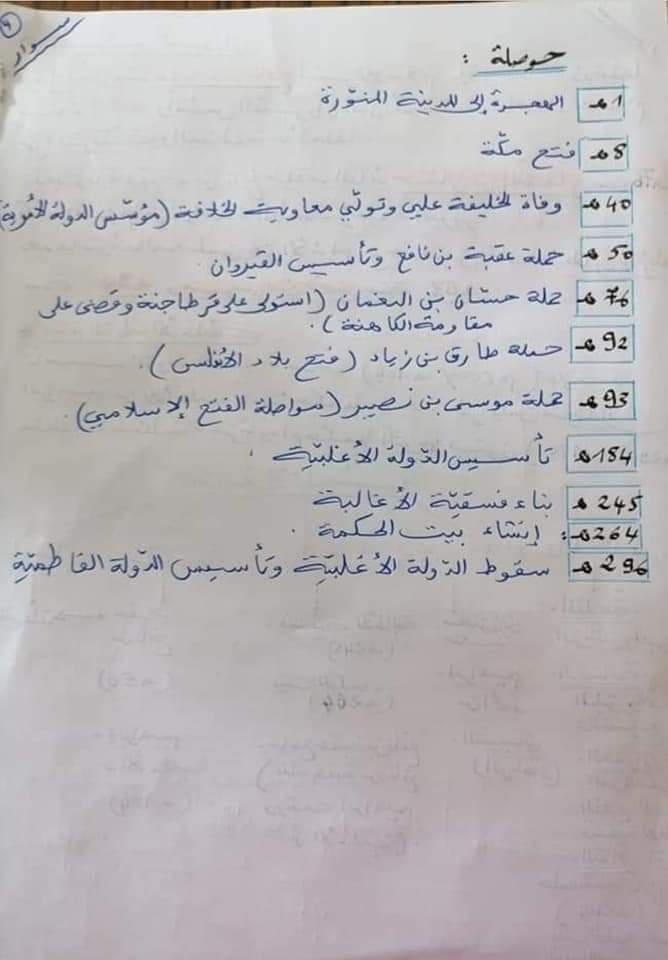 4
سوار
حوصلة :
1 هـ الهجرة إلى المدينة المنوّرة
8 هـ فتح مكّة
40 هـ وفاة الخليفة علي وتولّي معاوية الخلافة (مؤسّس الدولة الأموية)
50 هـ حملة عقبة بن نافع وتأسيس القيروان
76 هـ حملة حسّان بن النعمان (استولى على قرطاجنة وقضى على
مقاومة الكاهنة).
92 هـ حملة طارق بن زياد (فتح بلاد الأندلس).
93 هـ حملة موسى بن نصير (مواصلة الفتح الإسلامي).
184 هـ تأسيس الدّولة الأغلبيّة .
245 هـ بناء فسقيّة الأغالبة
264 هـ : إنشاء بيت الحكمة .
296 هـ سقوط الدّولة الأغلبيّة وتأسيس الدّولة الفاطميّة